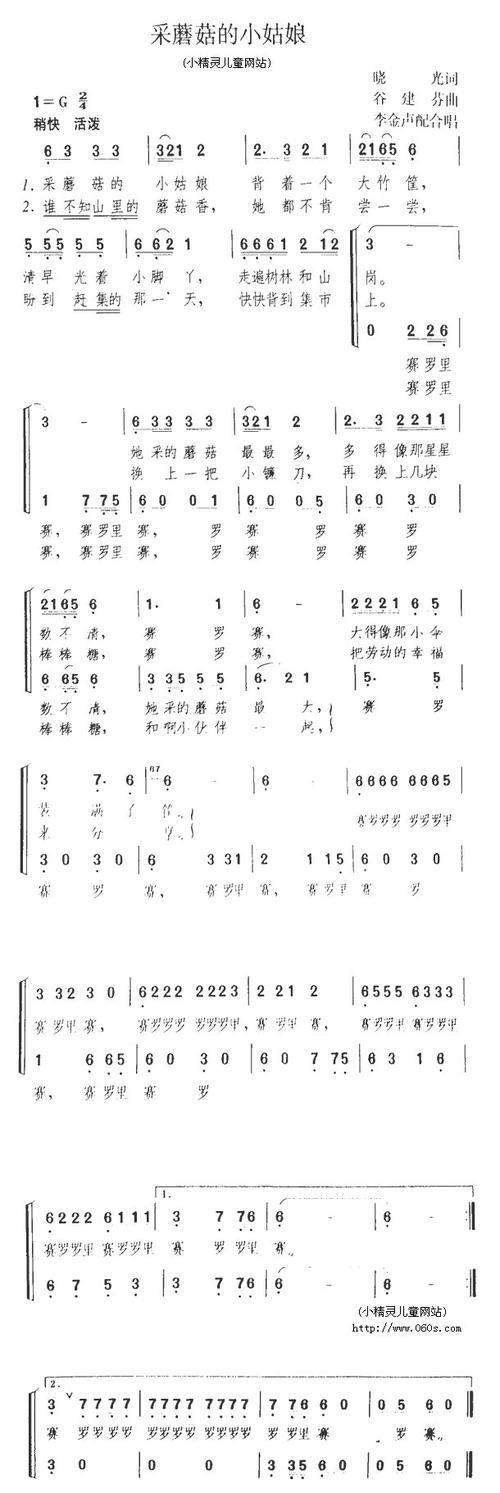 采蘑菇的小姑娘
(小精灵儿童网站)
1=G 2/4
晓 光词
谷 建 芬曲
稍快 活泼
李金声配合唱
6 3 3 3 | 321 2 | 2. 3 2 1 | 2165 6 |
1. 采 蘑 菇的 小 姑娘 背 着一个 大 竹 筐,
2. 谁 不知山 里的 蘑菇香, 她 都不肯 尝 一 尝,
5 55 5 5 | 6 62 1 | 6661 2 12 | 3 - |
清早 光着 小 脚 丫, 走遍树林和 山 岗。
盼到 赶 集的 那 一 天, 快快背到 集 市 上。
0 2 26 |
赛 罗里
赛 罗里
3 - | 6 33 3 3 | 321 2 | 2. 3 2211 |
她 采的 蘑菇 最 最 多, 多 得像那星星
换 上一 把 小 镰 刀, 再 换上几块
1 7 75 | 6 0 0 1 | 6 0 0 5 | 6 0 3 0 |
赛, 赛罗里 赛, 罗 赛 罗 赛 罗
赛, 赛罗里 赛, 罗 赛 罗 赛 罗
2165 6 | 1. 1 | 6 - | 2221 6 5 |
数 不 清, 赛 罗 赛, 大得像那小伞
棒 棒 糖, 赛 罗 赛, 把劳动的幸福
6 65 6 | 3 35 5 5 | 6. 2 1 | 5. 5 |
数 不 清, 她 采的 蘑菇 最 大, 赛 罗
棒 棒 糖, 和 啊小 伙伴 一 起,
3 7. 6 | 67 6 - | 6 - | 6666 6665 |
装 满 了 筐。 赛罗罗罗 罗罗罗里
来 分 享。
3 0 3 0 | 6 3 31 | 2 1 15 | 6 0 3 0 |
赛 罗 赛, 赛罗里 赛, 赛罗里 赛 罗
3 32 3 0 | 6222 2223 | 2 21 2 | 6555 6333 |
赛 罗里 赛, 赛罗罗罗 罗罗罗里, 赛 罗里 赛, 赛罗罗里 赛罗罗里
1 6 65 | 6 0 3 0 | 6 0 7 75 | 6 3 1 6 |
赛, 赛 罗里 赛 罗
1.
6222 6111 | 3 7 76 | 6 - | 6 - :‖
赛罗罗里 赛罗罗里 赛 罗 罗里 赛。
6 7 5 3 | 3 7 76 | 6 - | 6 - :‖
(小精灵儿童网站)
http://www.060s.com
2.
3 ∨ 7777 | 7777 7777 | 7 76 6 0 | 0 5 6 0 ‖
赛 罗罗罗罗 罗罗罗罗 罗罗罗罗 罗 罗里赛 罗 赛。
3 0 | 0 0 | 3 35 6 0 | 0 5 6 0 ‖